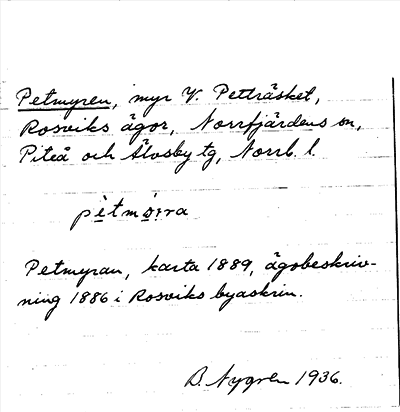 Petmyren, myr V. Petträsket,
Rosviks ägor, Norrfjärdens sn,
Piteå och Älvsby tg, Norrb. l.
Petmyran, karta 1889, ägobeskriv-
ning 1886 i Rosviks byaskrin.
B. Nygren 1936.